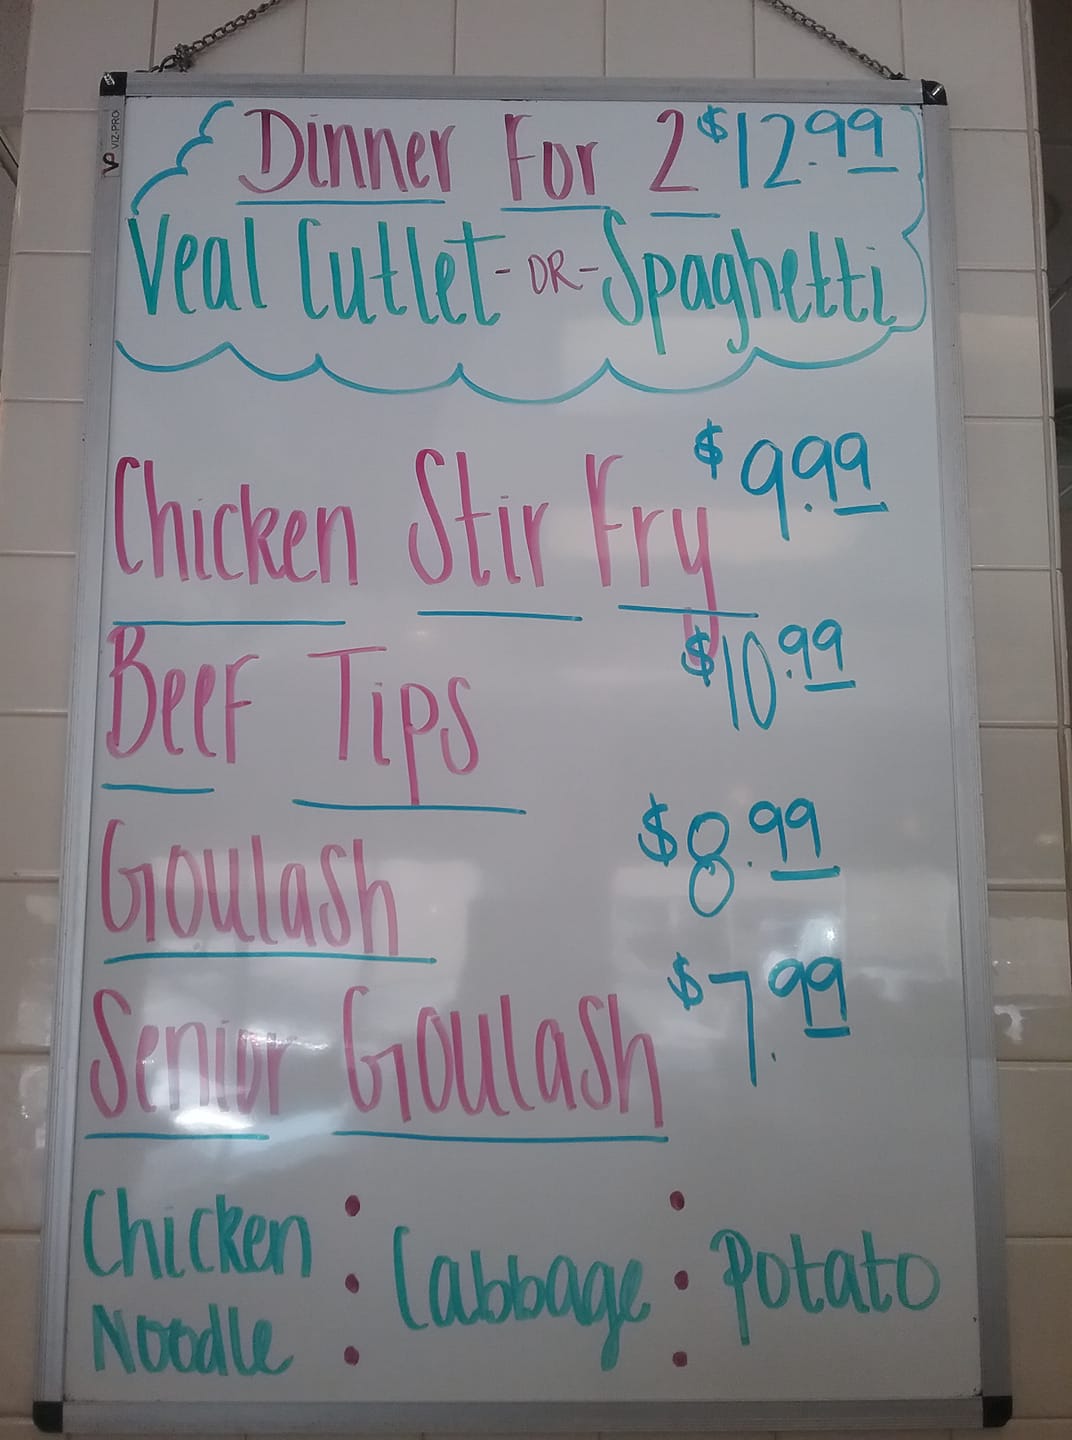 VP VIZ-PRO
Dinner For 2 $12.99
Veal Cutlet -OR- Spaghetti
Chicken Stir Fry $9.99
Beef Tips $10.99
Goulash $8.99
Senior Goulash $7.99
Chicken Noodle : Cabbage : Potato